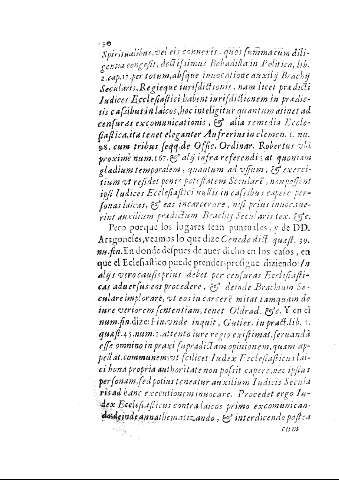 30
Spiritualibus. vel eis connexis. quos summa cum dili-
gentia congesit, doctissimus Bobadilla in Politica, lib.
2. cap. 17. per totum, absque inuocatione auxilij Brachij
Secularis. Regieque iurisdictionis. nam licet prædicti
Iudices Ecclesiastici habent iurisdictionem in prædic-
tis casibus in laicos, hoc intelligitur quantum atinet ad
censuras excomunicationis, & alia remedia Eccle-
siastica. ita tenet eleganter Aufrerius in clemen. 1. nu.
28. cum tribus seqq. de Offic. Ordinar. Robertus vbi
proximè num. 167. & alij infra referendi: at quoniam
gladium temporalem, quantum ad vsum, & exerci-
tium vt residet penes potestatem Secularē, non possūt
isti Iudices Ecclesiastici nullis in casibus capere per-
sonas laicas, & eas incarcerare, nisi prius inuocaue-
rint auxilium prædictum Brachij Secularis tex. &c.
Pero porque los lugares sean puntuales, y de DD.
Aragoneses, veamos lo que dize Cenedo dict. quæst. 39.
nu. fin. En donde despues de auer dicho en los casos, en
que el Eclesiastico puede prender prosigue diziendo: In
alijs vero causis prius debet per censuras Ecclesiasti-
cas aduersus eos procedere, & deinde Brachium Se-
culare implorare, vt eos in carcerē mitat tamquam de
iure veriorem sententiam, tenet Oldrad. &c. Y en el
num. fin. dize: Fin. vnde inquit, Gutier. in pract. lib. 1.
quæst. 45. num. 2. attento iure regio existimat, seruandā
esse omnino in praxi supradictam opinionem, quam ap-
pellat communem vt scilicet Iudex Ecclesiasticus lai-
ci bona propria authoritate non possit capere, nec ipsius
personam, sed potius teneatur auxilium Iudicis Secula
ris ad hanc executionem inuocare. Procedet ergo Iu-
dex Ecclesiasticus contra laicos primo excomunican-
do, deinde anathematizando, & interdicendo postea
cum